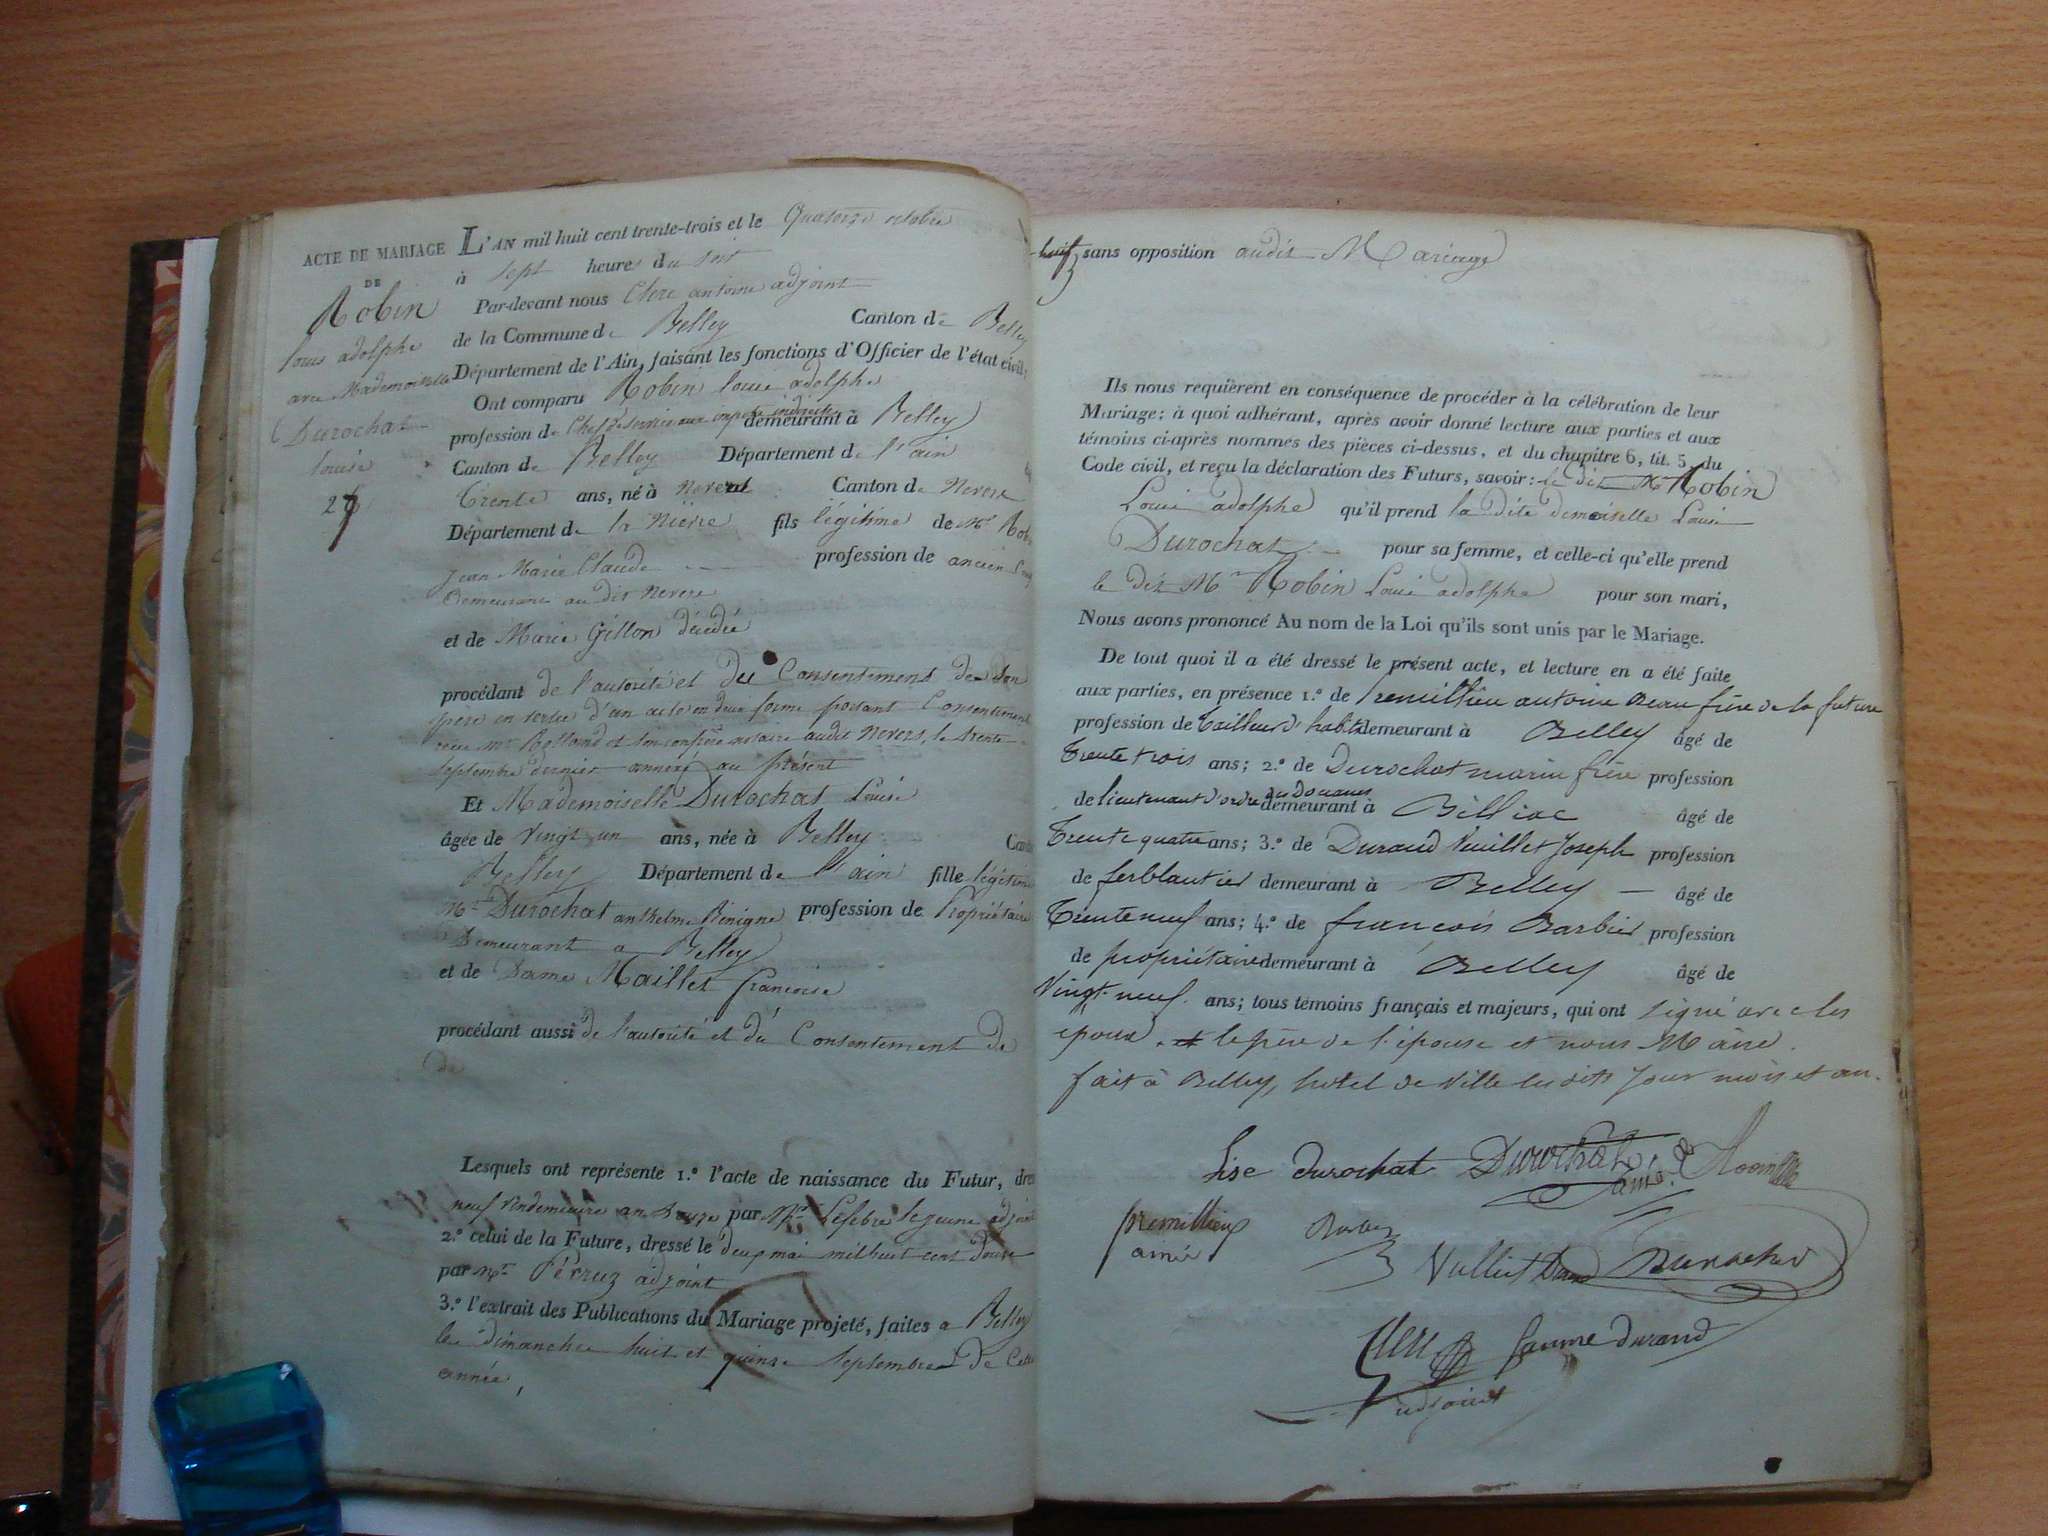 ACTE DE MARIAGE
DE
Robin
louis adolphe
avec Mademoiselle
Durochat
louise
27
L'AN mil huit cent trente-trois et le Quatorze octobre
à sept heures du soir
Par-devant nous Clerc antoine adjoint
de la Commune de Belley Canton de Belley
Département de l'Ain, faisant les fonctions d'Officier de l'état civil,
Ont comparu Robin louis adolphe
profession de Chef de service aux impots indirects demeurant à Belley
Canton de Belley Département de l'ain
Trente ans, né à Nevers Canton de Nevers
Département de la Nièvre fils légitime de Mr Robin
Jean Marie Claude profession de ancien
Demeurant au dit Nevers
et de Marie Gillon décédée
procédant de l'autorité et du Consentement de son
père en vertu d'un acte en due forme portant Consentement
reçu mr Rolland et son confrère notaire audit Nevers, le trente
septembre dernier année au présent
Et Mademoiselle Durochat Louise
âgée de vingt un ans, née à Belley
Belley Département de l'ain fille légitime
Mr Durochat anthelme Bénigne profession de Propriétaire
Demeurant a Belley
et de Dame Maillet francoise
procédant aussi de l'autorité et du Consentement de
de
Lesquels ont représenté 1.º l'acte de naissance du Futur,
neuf Vendemiaire an Douze par Mr Lefebre lejeune adjoint
2.º celui de la Future, dressé le deux mai mil huit cent douze
par Mr Perruz adjoint
3.º l'extrait des Publications du Mariage projeté, faites a Belley
les dimanches huit et quinze septembre de Cette
année,
sans opposition audit Mariage
Ils nous requièrent en conséquence de procéder à la célébration de leur
Mariage: à quoi adhérant, après avoir donné lecture aux parties et aux
témoins ci-après nommés des pièces ci-dessus, et du chapitre 6, tit. 5, du
Code civil, et reçu la déclaration des Futurs, savoir: le dit Mr Robin
Louis adolphe qu'il prend la dite demoiselle Louise
Durochat pour sa femme, et celle-ci qu'elle prend
le dit Mr Robin Louis adolphe pour son mari,
Nous avons prononcé Au nom de la Loi qu'ils sont unis par le Mariage.
De tout quoi il a été dressé le présent acte, et lecture en a été faite
aux parties, en présence 1.º de Premillieu antoine Beau frère de la future
profession de Tailleur d'habits demeurant à Belley âgé de
Trente trois ans; 2.º de Durochat marin frère profession
de lieutenant d'ordre des Douanes demeurant à Billiac âgé de
Trente quatre ans; 3.º de Durand Vuillet Joseph profession
de ferblantier demeurant à Belley âgé de
Trente neuf ans; 4.º de françois Barbier profession
de propriétaire demeurant à Belley âgé de
Vingt-neuf ans; tous témoins français et majeurs, qui ont signé avec les
epoux. et le père de l'épouse et nous Maire.
fait à Belley, hotel de Ville les dits jour mois et an.
Lise durochat Durochat
premillieu
ainé
Durochat
Clerc fanme durand
adjoint